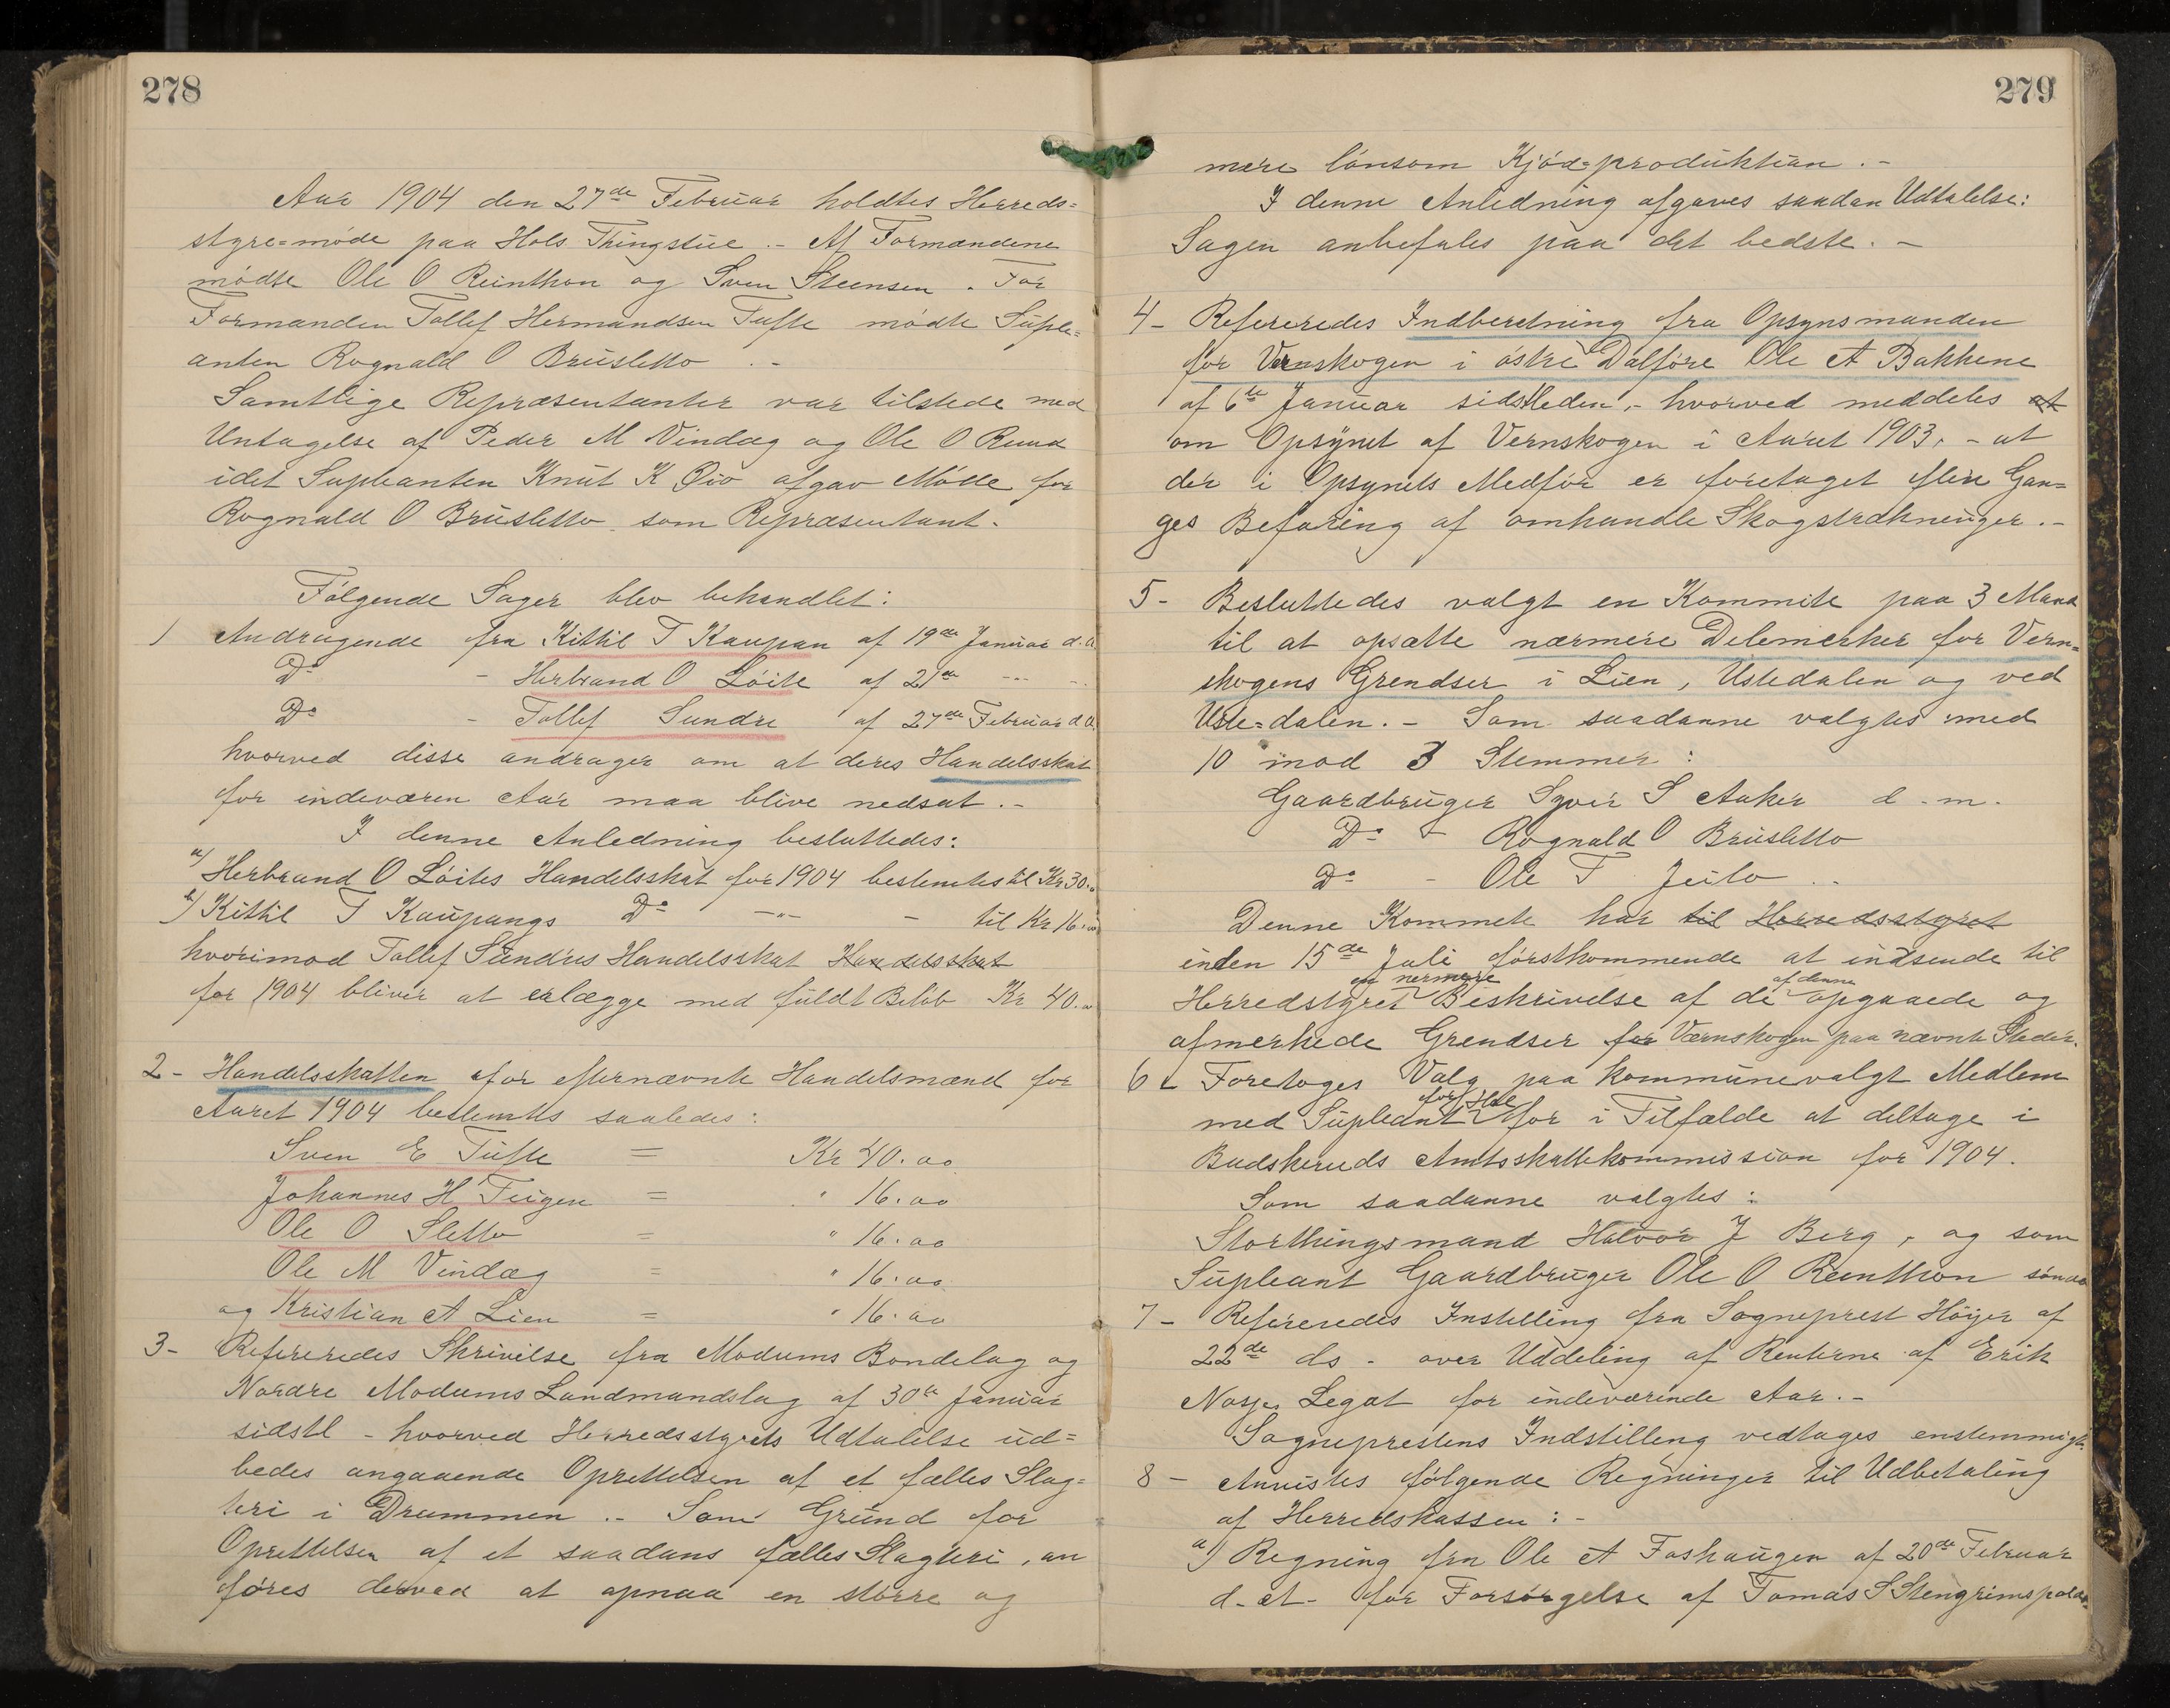 278
Aar 1904 den 27de Februar holdtes Herreds=
styre=møde paa Hols Thingstue .- Af Formændene
mødte Ole O Reinthon og Sven Steensen . For
Formanden Tollef Hermandsen Tufte mødte Suple=
anten Rognald O Brusletto .-
Samtlige Repræsentanter var tilstede med
Untagelse af Peder M Vindæg og Ole O Ruud
idet Supleanten Knut K Øio afgav Møde for
Rognald O Brusletto som Repræsentant.
Følgende Sager blev behandlet:
1 Andragende fra Kittil T Kaupan af 19de Januar d.A.
Do - Herbrand O Løite af 21de -"- -
Do - Tollef Sundre af 27de Februar d.A.
hvorved disse andrager om at deres Handelsskat
for indeværen Aar maa blive nedsat .-
I denne Anledning besluttedes:
a) Herbrand O Løites Handelsskat for 1904 bestemtes til Kr 30.oo
b) Kittil T Kaupangs Do -"- - til Kr 16.oo
hvorimod Tollef Sundres Handelsskat Handelsskat
for 1904 bliver at erlægge med fuldt Beløb Kr 40.oo
2- Handelsskatten for efternævnte Handelsmænd for
Aaret 1904 bestemtes saaledes:
Sven E Tufte = Kr 40.oo
Johannes H Teigen = " 16.oo
Ole O Sletto = " 16.oo
Ole M Vindæg = " 16.oo
og Kristian A Lien = " 16.oo
3- Refereredes Skrivelse fra Modums Bondelag og
Nordre Modums Landmandslag af 30te Januar
sidstl - hvorved Herredsstyrets Udtalelse ud=
bedes angaaende Oprettelsen af et fælles Slag=
teri i Drammen .- Som Grund for
Oprettelsen af et saadans fælles Slagteri, an
føres derved at opnaa en større og
279
mere lønsom Kjød=produktion .-
I denne Anledning afgaves saadan Udtalelse:
Sagen anbefales paa det bedste. -
4- Refereredes Indberetning fra Opsynsmanden
for Vernskogen i østre Dalføre Ole A Bakkene
af 6te Januar sidstleden,- hvorved meddeles at
om Opsynet af Vernskogen i Aaret 1903. - at
der i Opsynets Medfør er foretaget flere Gan=
ges Befaring af omhandle Skogstrækninger .-
5- Besluttedes valgt en Kommite paa 3 Mand
til at opsætte nærmere Delemerker for Vern=
skogens Grendser i Lien, Ustedalen og ved
Uste=dalen.- Som saadanne valgtes med
10 mod 3 Stemmer :
Gaardbruger Syver S Aaker d.m.
Do - Rognald O Brusletto
Do - Ole T Jeilo ..
Denne Kommete har til Herredsstyret
inden 15de Juli førstkommende at indsende til
en nermere af denne
Herredstyret Beskrivelse af de opgaaede og
afmerkede Grendser for Værnskogen paa nævnte Steder.
6- Foretoges Valg paa kommunevalgt Medlem
for Hol
med Supleant for i Tilfælde at deltage i
Buskeruds Amtsskattekommission for 1904.
Som saadanne valgtes:
Storthingsmand Halvor J Berg, og som
Supleant Gaardbruger Ole O Reinthon
7- Refereredes Instelling fra Sogneprest Høyer af
22de ds - over Uddeling af Renterne af Erik
Nosjes Legat for indeværende Aar.-
Sogneprestens Indstilling vedtages enstemmigt.
8- Anvistes følgende Regninger til Udbetaling
af Herredskassen :-
a) Regning fra Ole A Foshaugen af 20de Februar
d.A- for Forsørgelse af Tomas S